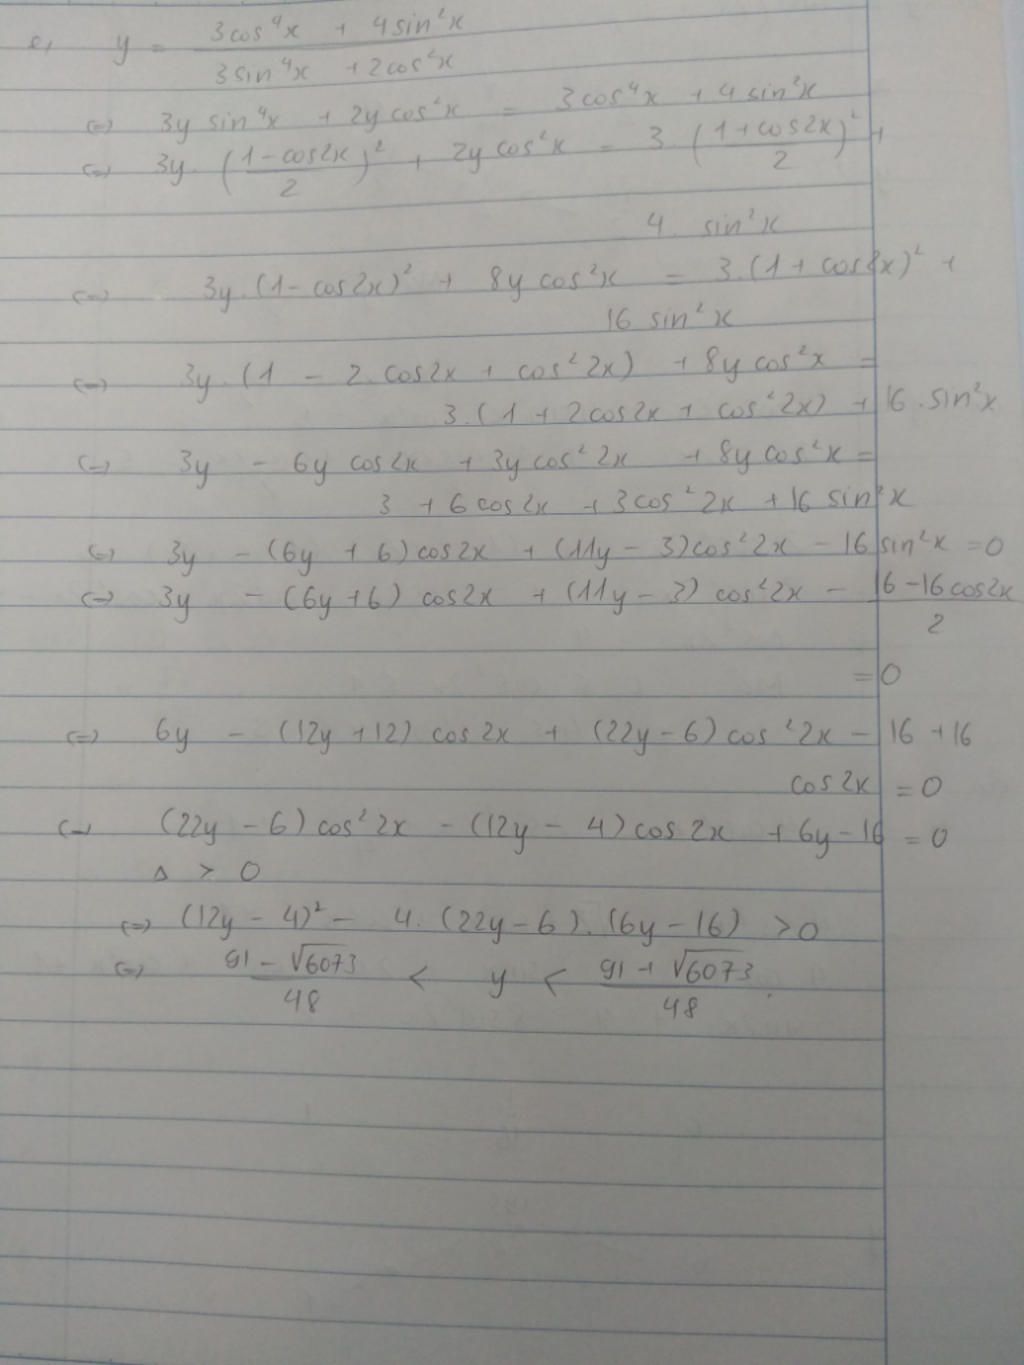 e, y = (3cos⁴x + 4sin²x) / (3sin⁴x + 2cos²x)
(=) 3y sin⁴x + 2y cos²x = 3cos⁴x + 4 sin²x
(=) 3y. ((1 - cos2x)/2)² + 2y cos²x = 3. ((1 + cos2x)/2)² +
4. sin²x
(=) 3y.(1 - cos2x)² + 8y cos²x = 3.(1 + cos2x)² +
16 sin²x
(=) 3y.(1 - 2.cos2x + cos²2x) + 8y cos²x =
3.(1 + 2cos2x + cos²2x) + 16.sin²x
(=) 3y - 6y cos2x + 3y cos²2x + 8y cos²x =
3 + 6cos2x + 3cos²2x + 16 sin²x
(=) 3y - (6y + 6)cos2x + (11y - 3)cos²2x - 16 sin²x = 0
(=) 3y - (6y+6) cos2x + (11y - 3) cos²2x - (16 - 16cos2x)/2
= 0
(=) 6y - (12y + 12) cos2x + (22y - 6) cos²2x - 16 + 16
cos2x = 0
(=) (22y - 6) cos²2x - (12y - 4) cos2x + 6y - 16 = 0
Δ > 0
(=) (12y - 4)² - 4. (22y - 6). (6y - 16) > 0
(=) (91 - √6073)/48 < y < (91 + √6073)/48.